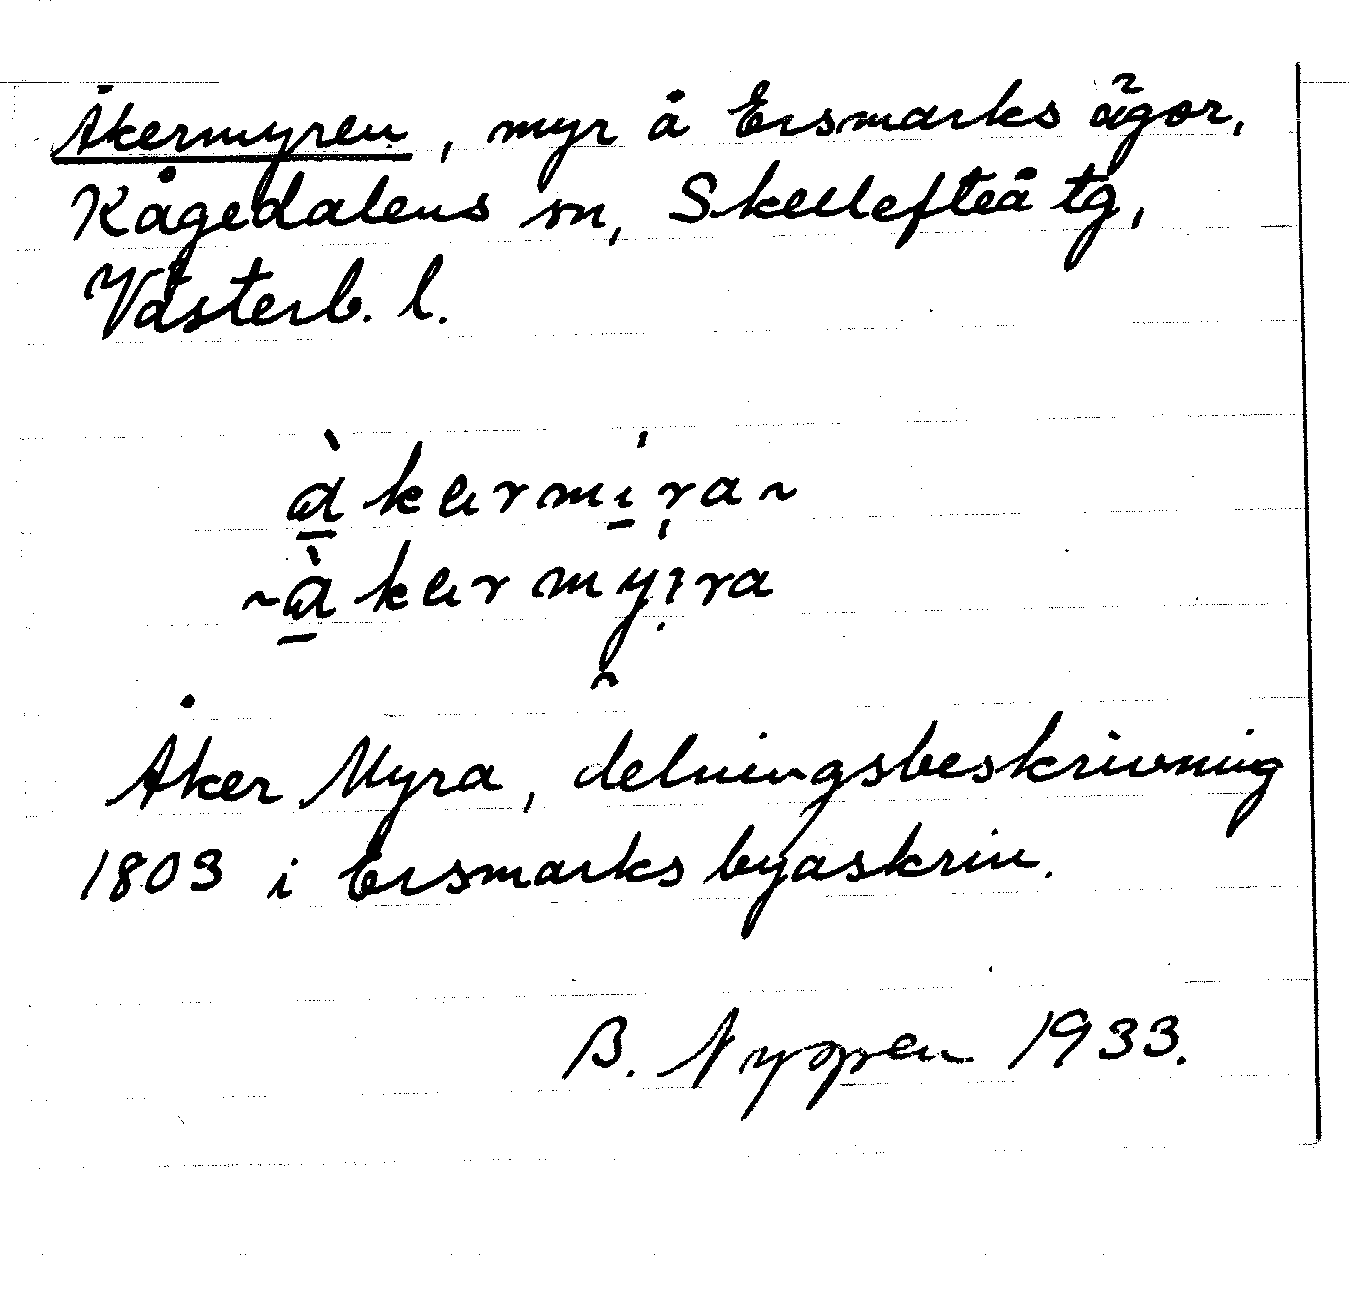 Åkermyren, myr å Ersmarks ägor,
Kågedalens sn, Skellefteå tg,
Västerb. l.
Åker Myra, delningsbeskrivning
1803 i Ersmarks byaskrin.
1933.